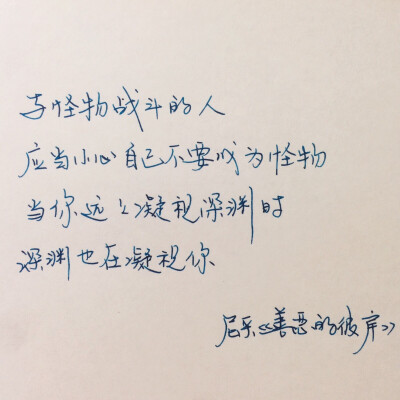 与怪物战斗的人
应当小心自己不要成为怪物
当你远久凝视深渊时
深渊也在凝视你
尼采《善恶的彼岸》